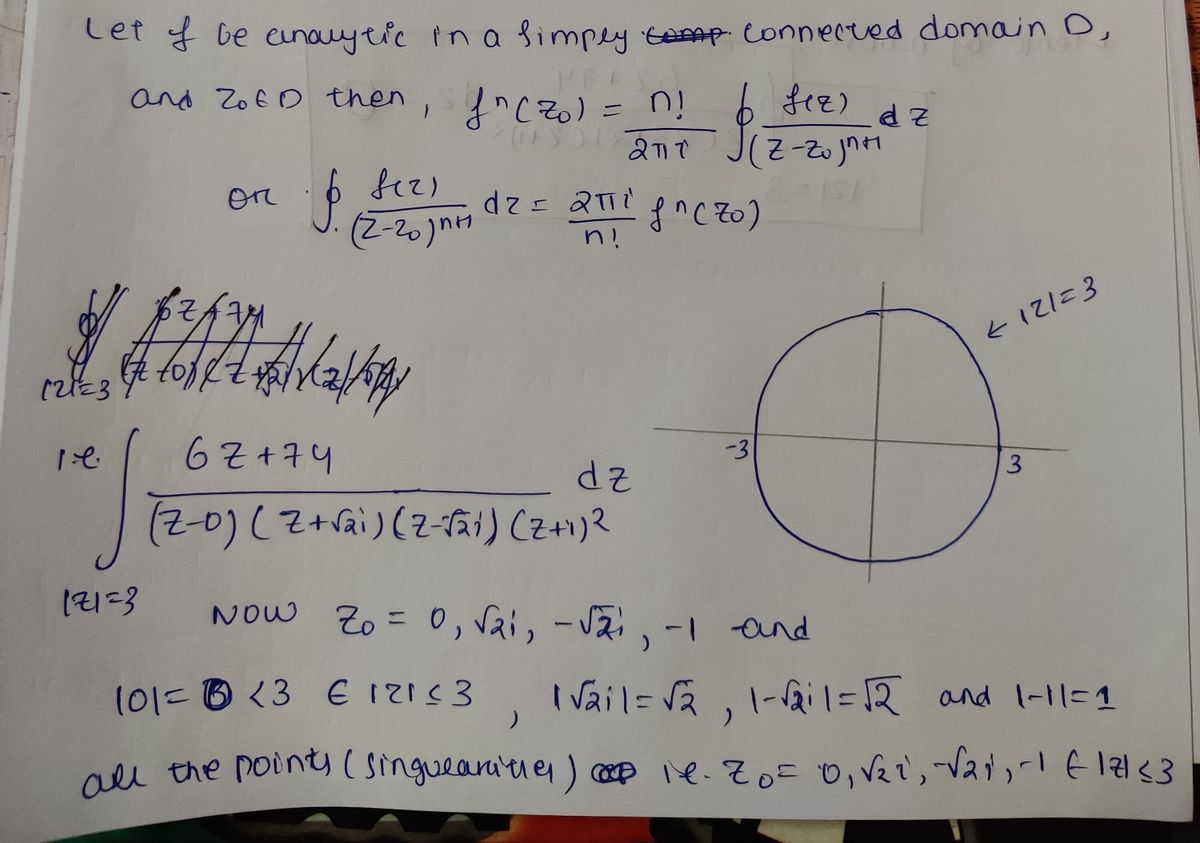 Let f be analytic in a simply connected domain D,
and z₀ ∈ D then, fⁿ(z₀) = n!/2πi ∮ f(z)/(z-z₀)ⁿ⁺¹ dz
or ∮ f(z)/(z-z₀)ⁿ⁺¹ dz = 2πi/n! fⁿ(z₀)
← |z|=3
-3
3
i.e. ∫ 6z+74/(z-0)(z+√2i)(z-√2i)(z+1)² dz
|z|=3
NOW z₀ = 0, √2i, -√2i, -1 and
|0|= 0 <3 ∈ |z| ≤ 3, |√2i|=√2, |-√2i|=√2 and |-1|=1
all the points (singularities) i.e. z₀= 0, √2i, -√2i, -1 ∈ |z| ≤ 3